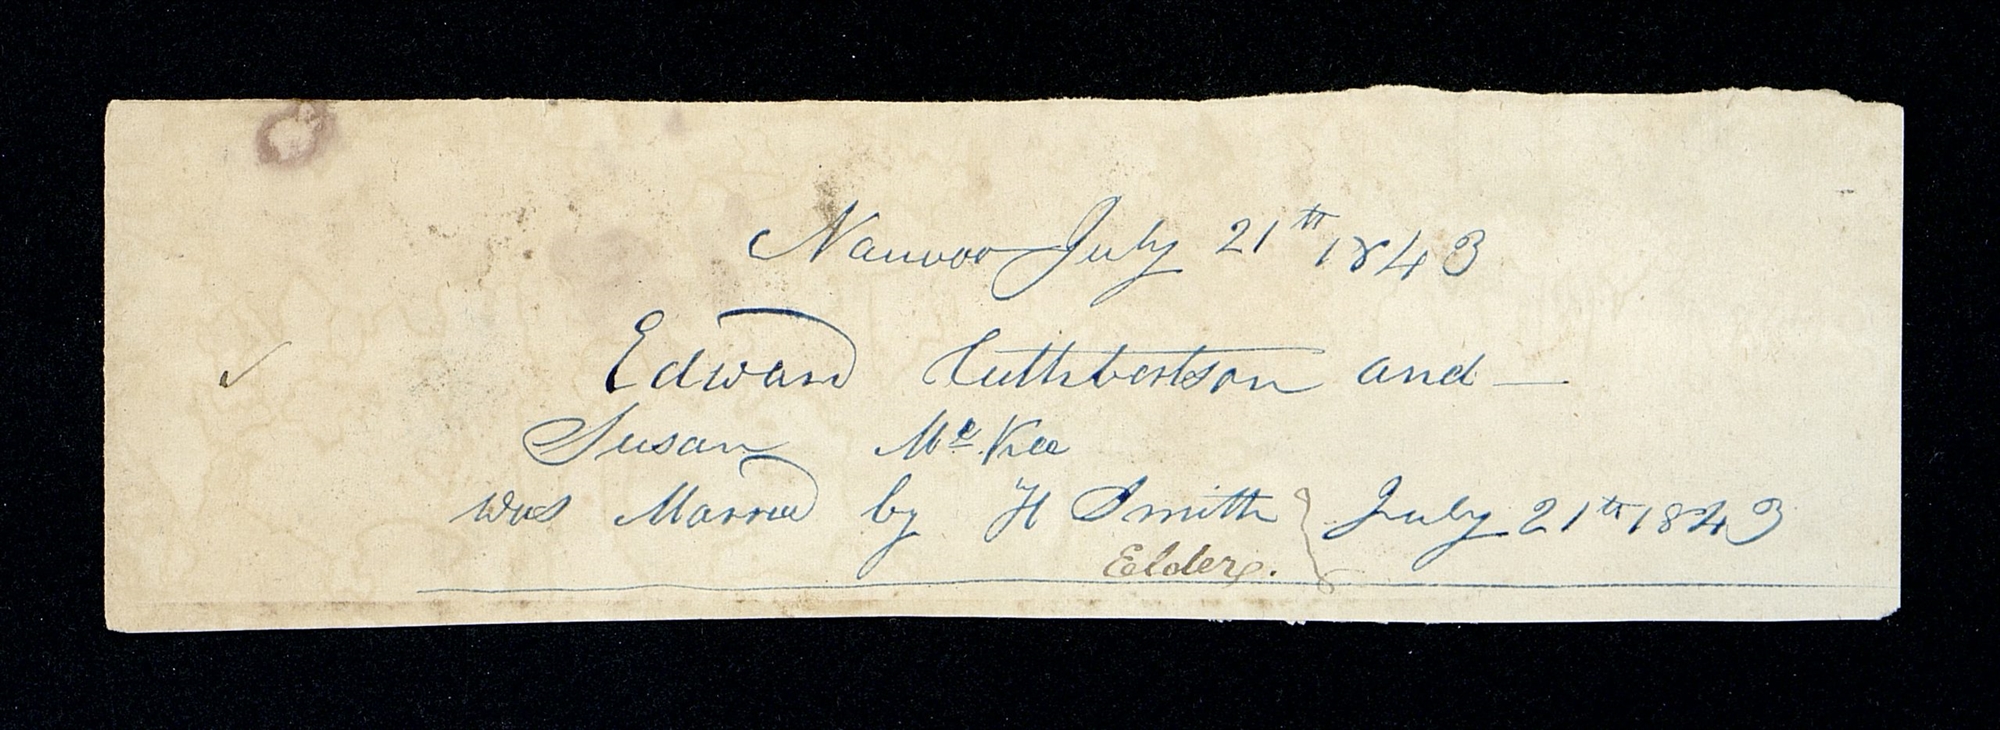 Nauvoo July 21th 1843
✓ Edward Cuthbertson and —
Susan Mc Kee
was Married by H Smith } July 21th 1843
Elder.